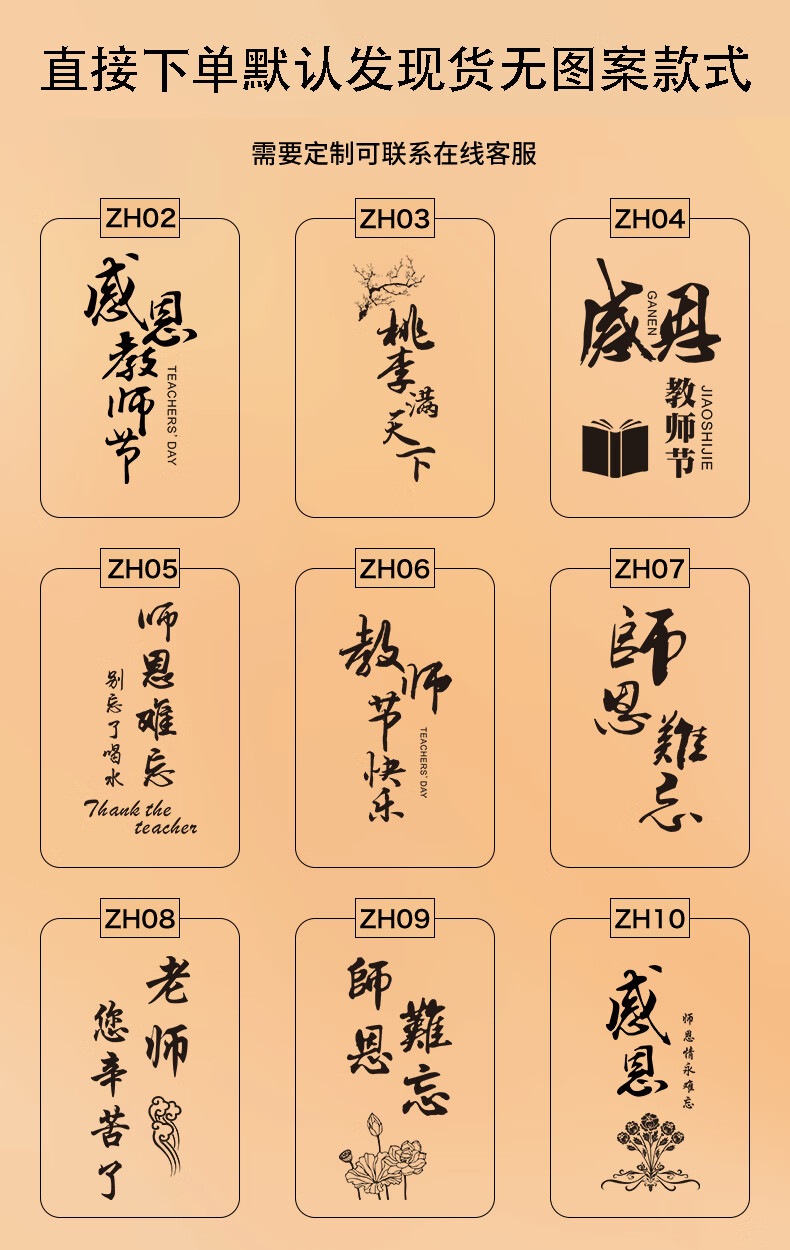 直接下单默认发现货无图案款式
需要定制可联系在线客服
ZH02
感恩
教师节
TEACHERS' DAY
ZH03
桃李满天下
ZH04
感恩
GANEN
教师节
JIAOSHIJIE
ZH05
师恩难忘
别忘了喝水
Thank the
teacher
ZH06
教师
节快乐
TEACHERS' DAY
ZH07
師恩
難忘
ZH08
老师
您辛苦了
ZH09
師恩
難忘
ZH10
感恩
师恩情永难忘